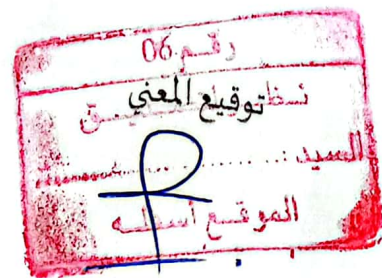 رقم 06
توقيع المعني
السيد :
الموقع أسفله